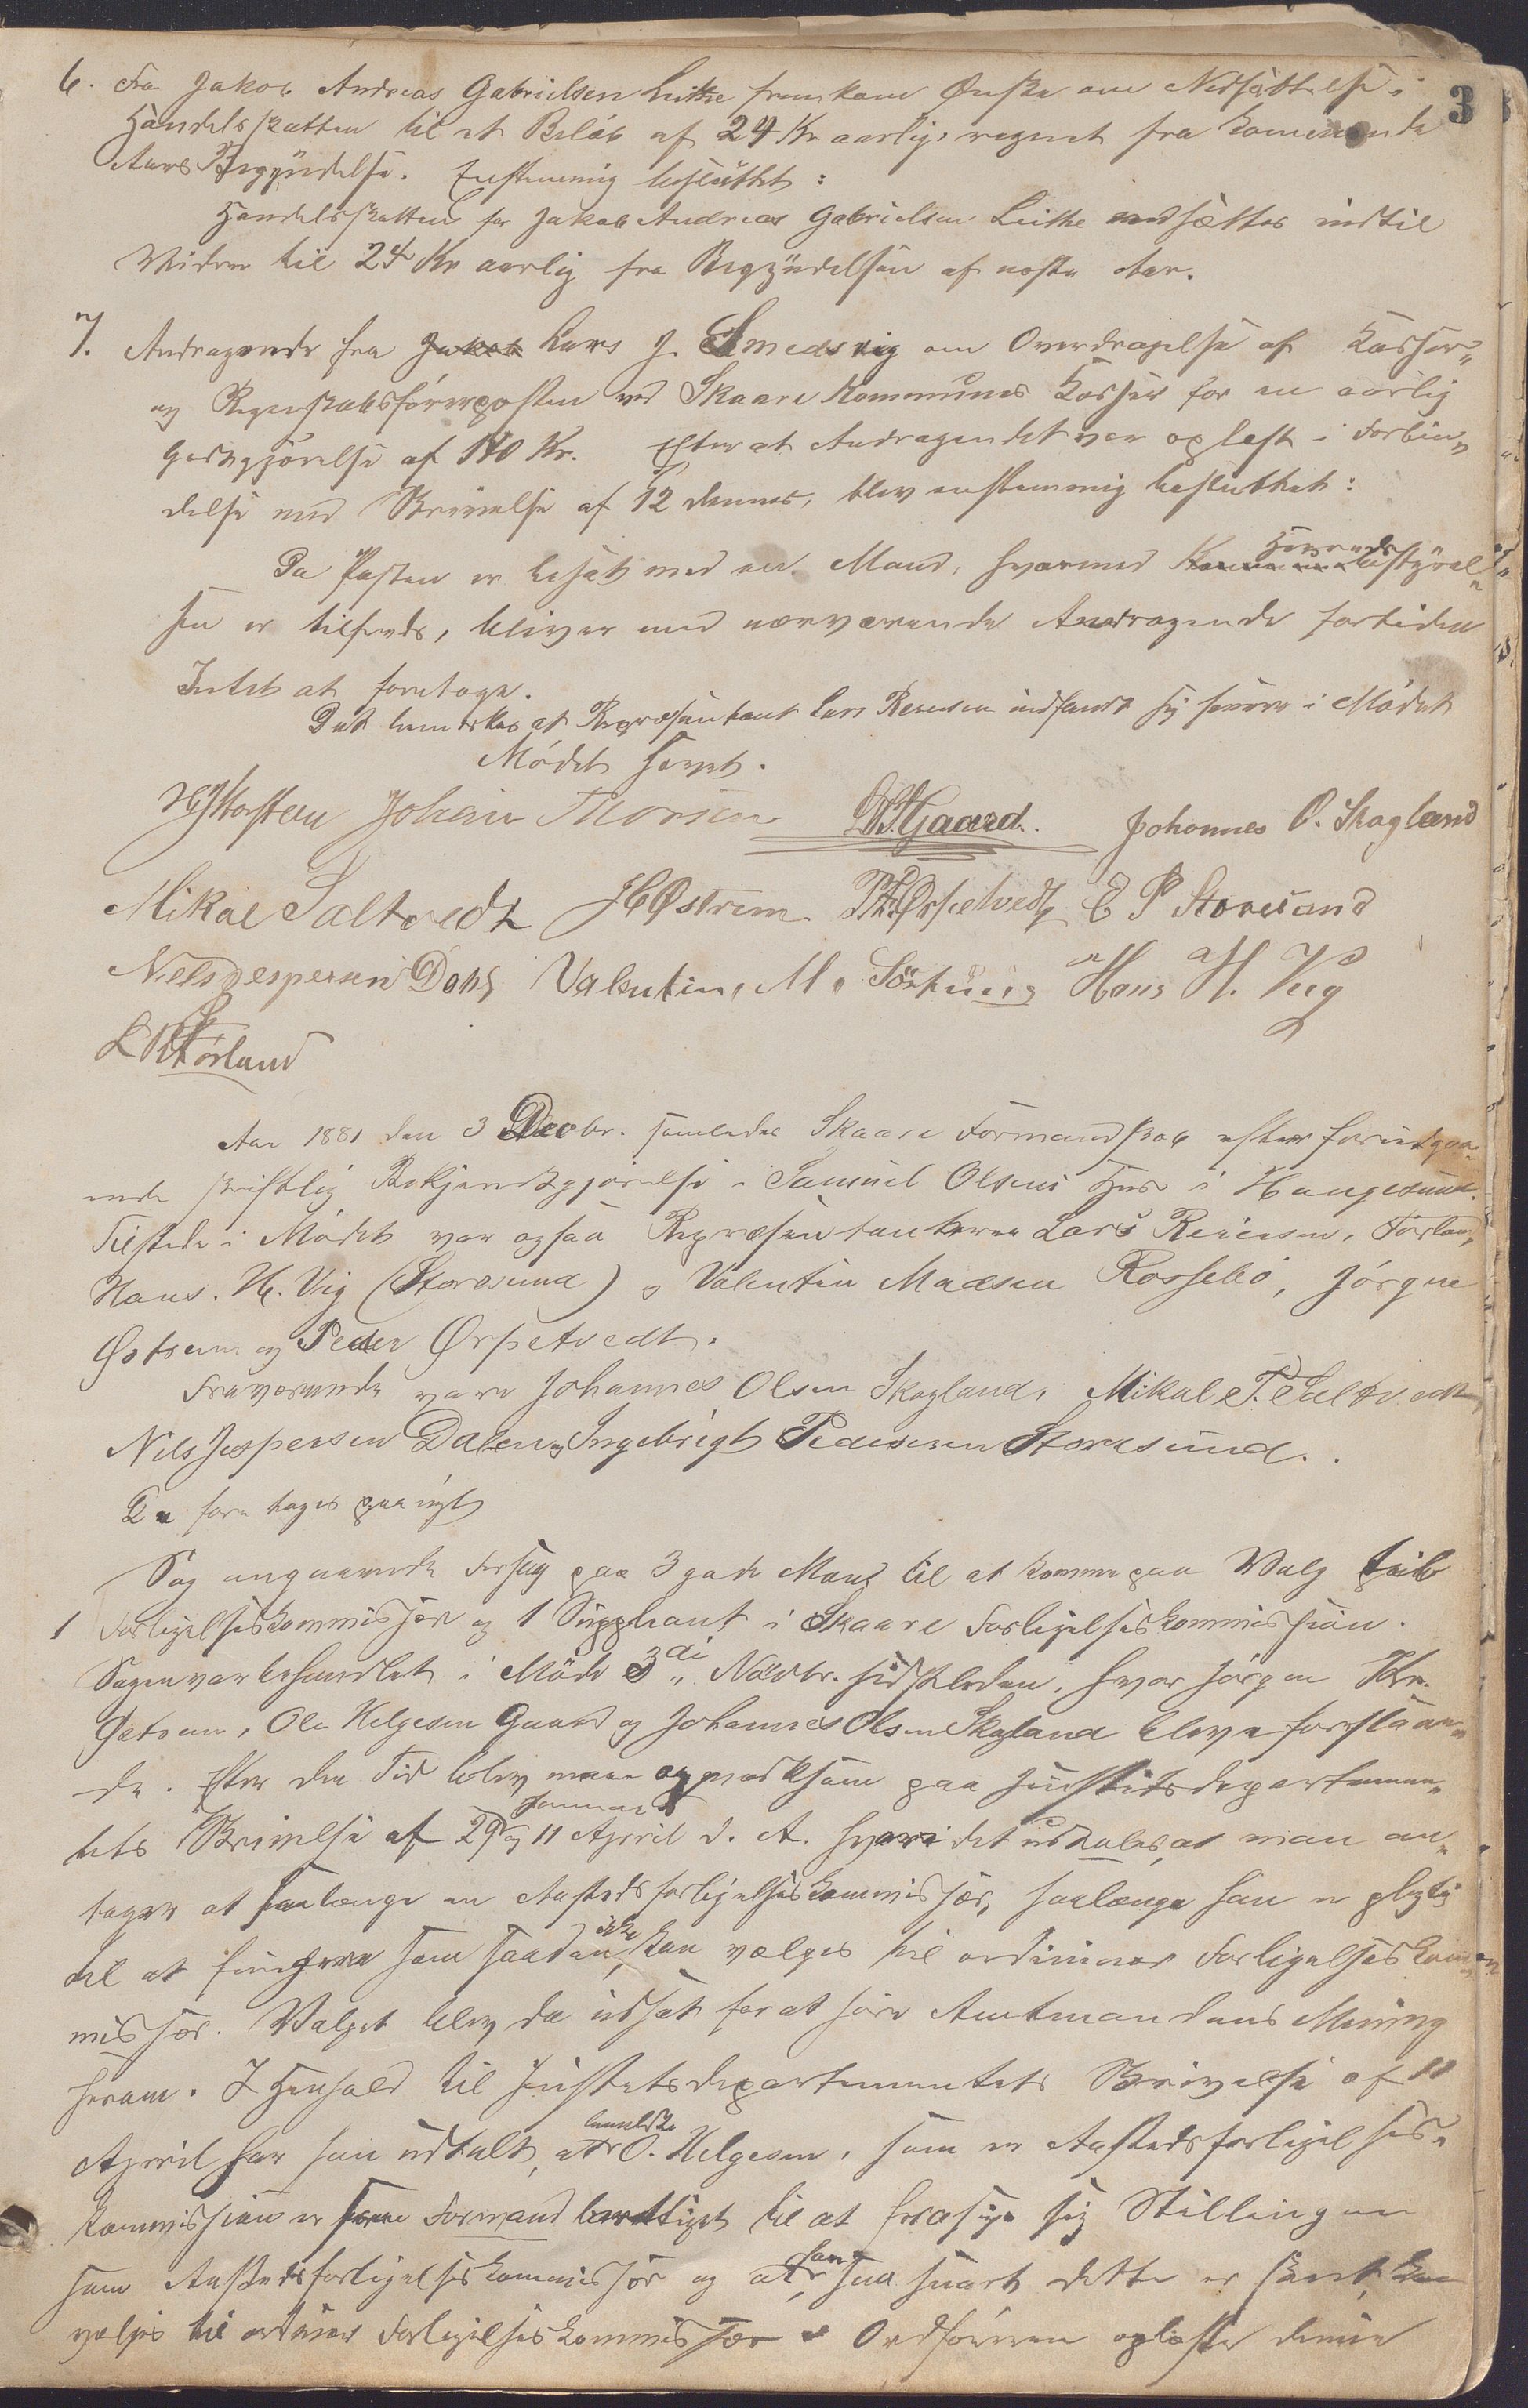 3
6. Fra Jakob Andreas Gabrielsen Leithe fremkom Ønske om Nedsættelse i
Handelsskatten til et Beløb af 24 Kr aarlig, regnet fra kommende
Aars Begyndelse. Enstemmig besluttet:
Handelsskatten for Jakob Andreas Gabrielsen Leithe nedsættes indtil
Videre til 24 Kr aarlig fra Begyndelsen af næste Aar.
7. Andragende fra Jakob Lars J. Smedsvig om Overdragelse af Kasser„
og Regnskabsførerposten ved Skaare Kommunes Kasser for en aarlig
Godtgjørelse af 140 Kr. Efterat Andragendet var oplæst i Forbin„
delse med Skrivelse af 12 dennes, blev enstemmig besluttet:
Da Posten er besat med en Mand, hvormed Herredsbestyrel„
sen er tilfreds, bliver med nærværende Andragende fortiden
Intet at foretage.
Det bemærkes at Repræsentant Lars Reinesen indfandt sig senere i Mødet
Mødet hævet.
Johan Thorsen Gaard. Johannes O. Skogland
Mikal Saltvedt J C Østrem P. Ørpetvedt E P Storesund
Niels Jespersen Valentin M. Hans H. Vig
L R Førland
Aar 1881 den 3 Decbr. samledes Skaare Formandskab efter foriudgaa„
ende skriftlig Bekjendtgjørelse i Samuel Olsens Hus i Haugesund.
Tilstede i Mødet var ogsaa Repræsentanterne Lars Reinesen, Førland,
Hans. H. Vig (Storesund) og Valentin Madsen Rossebø, Jørgen
Østrem og Peder Ørpetvedt.
Fraværende vare Johannes Olsen Skogland, Mikal T. Saltvedt
Nils Jespersen Dalen og Ingebrigt Pedersen Storesund.
Da foretages paa nyt
Sag angaaende Forslag paa 3 gode Mænd til at komme paa Valg til
1 Forligelseskommissær og 1 Suppleant i Skaare Forligelseskommission.
Sagen var behandlet i Møde 3di Novbr. sidstleden, hvor Jørgen Chr.
Østrem, Ole Helgesen Gaard og Johannes Olsen Skogland bleve foreslaae„
de. Efter den Tid blev man opmærksom paa Justitsdepartemen„
tets Skrivelse af 29 Januar og 11 April d. A. hvori det udtales, at man an„
tager at saalænge en Aastedsforligelseskommissær, saalænge han er pligtig
til at fungere som saadan, ikke kan vælges til ordinær Forligelseskom„
missær. Valget blev da udsat for at høre Amtmandens Mening
herom. I Henhold til Justitsdepartementets Skrivelse af 11
April har han udtalt, at bemeldte O. Helgesen, som er Aastedsforligelses„
kommissær er som Formand berettiget til at frasige sig Stillingen
som Aastedsforligelseskommissær og at han, saa snart dette er skeet, kan
vælges til ordinær Forligelseskommissær. Ordføreren oplæste denne